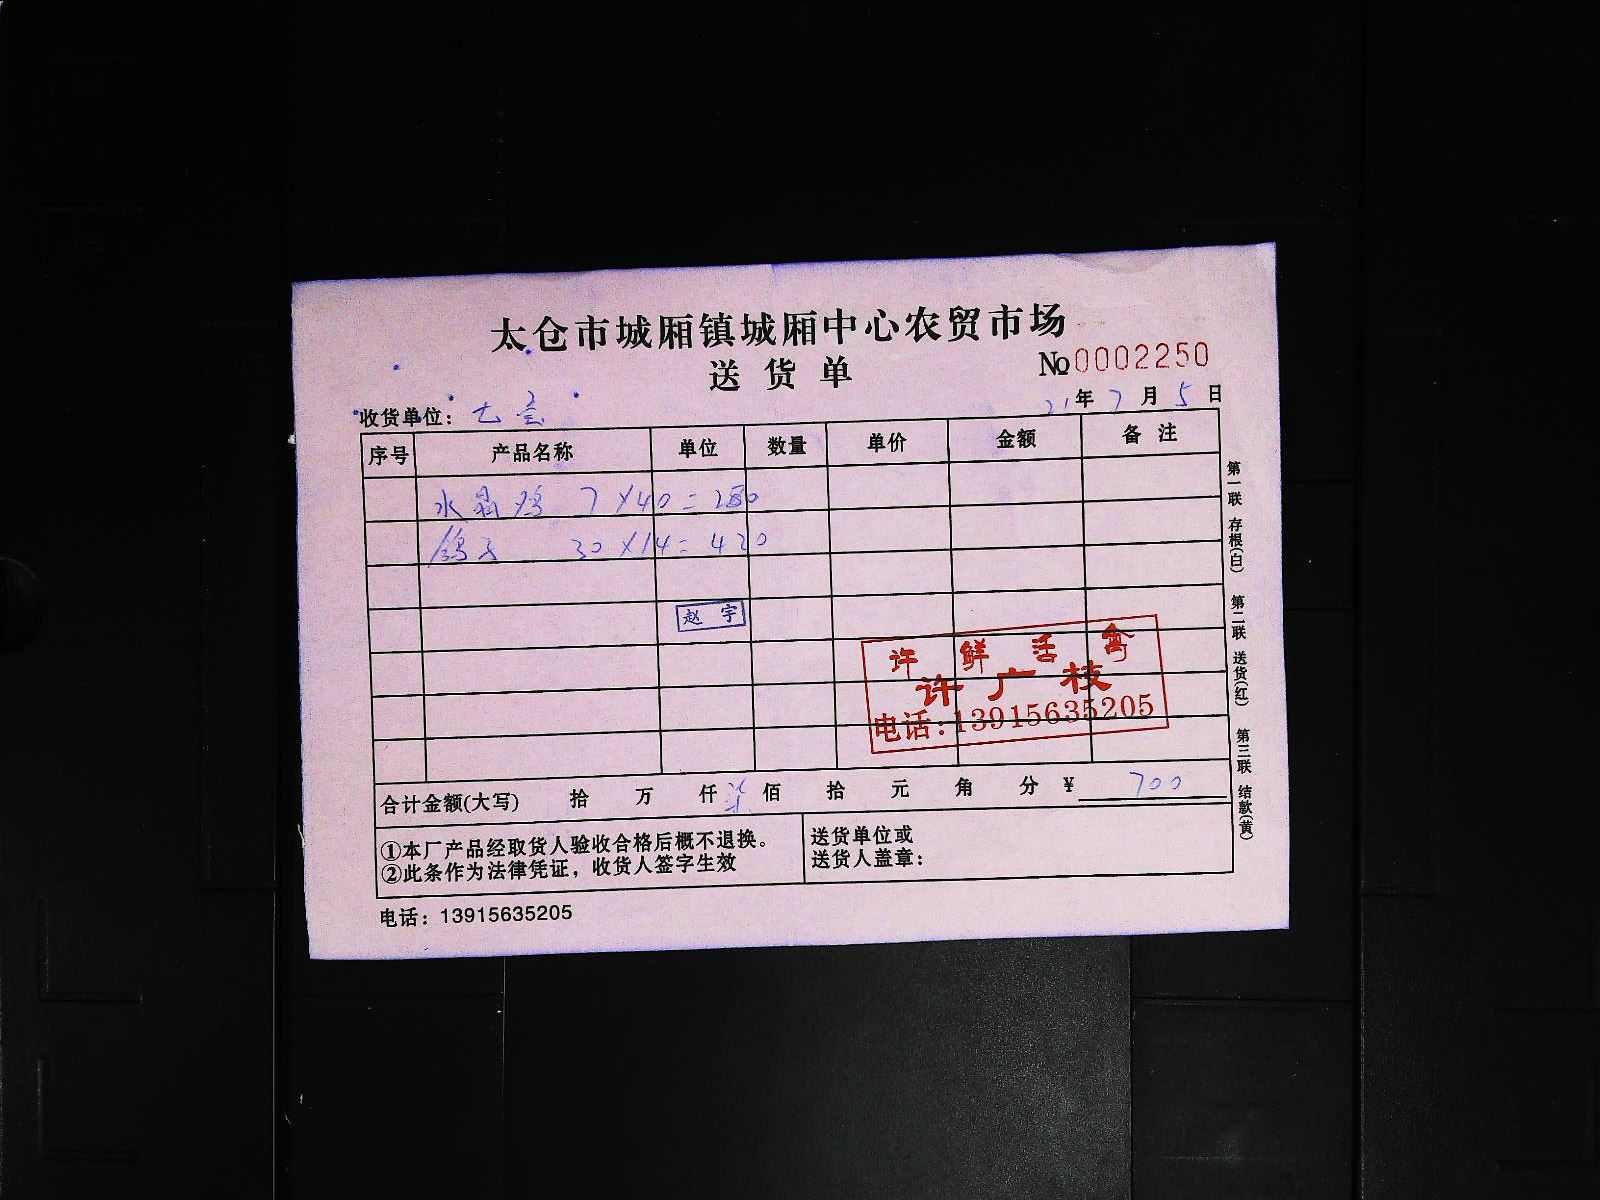 太仓市城厢镇城厢中心农贸市场
送货单
№0002250
收货单位：七
21年7月5日
序号 产品名称 单位 数量 单价 金额 备注
水晶鸡 7×40=280
鸽子 30×14=420
赵宇
许鲜活禽
许广枝
电话:13915635205
合计金额(大写) 拾 万 仟 柒佰 拾 元 角 分 ¥ 700
①本厂产品经取货人验收合格后概不退换。
②此条作为法律凭证，收货人签字生效
送货单位或
送货人盖章：
电话：13915635205
第一联 存根(白) 第二联 送货(红) 第三联 结款(黄)